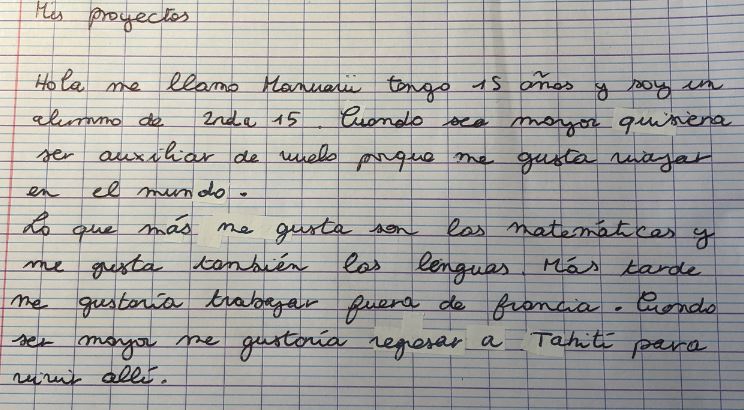 Mis proyectos
Hola me llamo Manuarii tengo 15 años y soy un
alumno de 2nde 15. Cuando sea mayor quisiera
ser auxiliar de vuelo porque me gusta viajar
en el mundo.
Lo que más me gusta son las matemáticas y
me gusta también las lenguas. Más tarde
me gustaría trabajar fuera de francia. Cuando
ser mayor me gustaría regresar a Tahiti para
vivir allí.